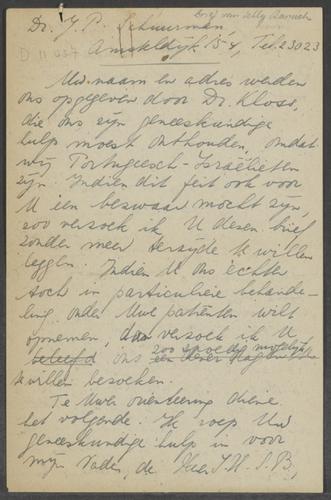 brief van Selly Baruch
Dr. J. P. Schuurman
Amsteldijk 154, Tel. 23023
D 11057
Uw naam en adres werden
ons opgegeven door Dr. Kloss,
die ons zijn geneeskundige
hulp moest onthouden, omdat
wij Portugeesch-Israëlieten
zijn. Indien dit feit ook voor
U een bezwaar mocht zijn,
zoo verzoek ik U dezen brief
zonder meer terzijde te willen
leggen. Indien U ons echter
toch in particuliere behande-
ling onder Uwe patiënten wilt
opnemen, dan verzoek ik U
beleefd ons zoo spoedig mogelijk
een dezer dagen
te willen bezoeken.
Te Uwer orienteering diene
het volgende. Ik roep Uw
geneeskundige hulp in voor
mijn Vader, de Heer I. H. S. B.,